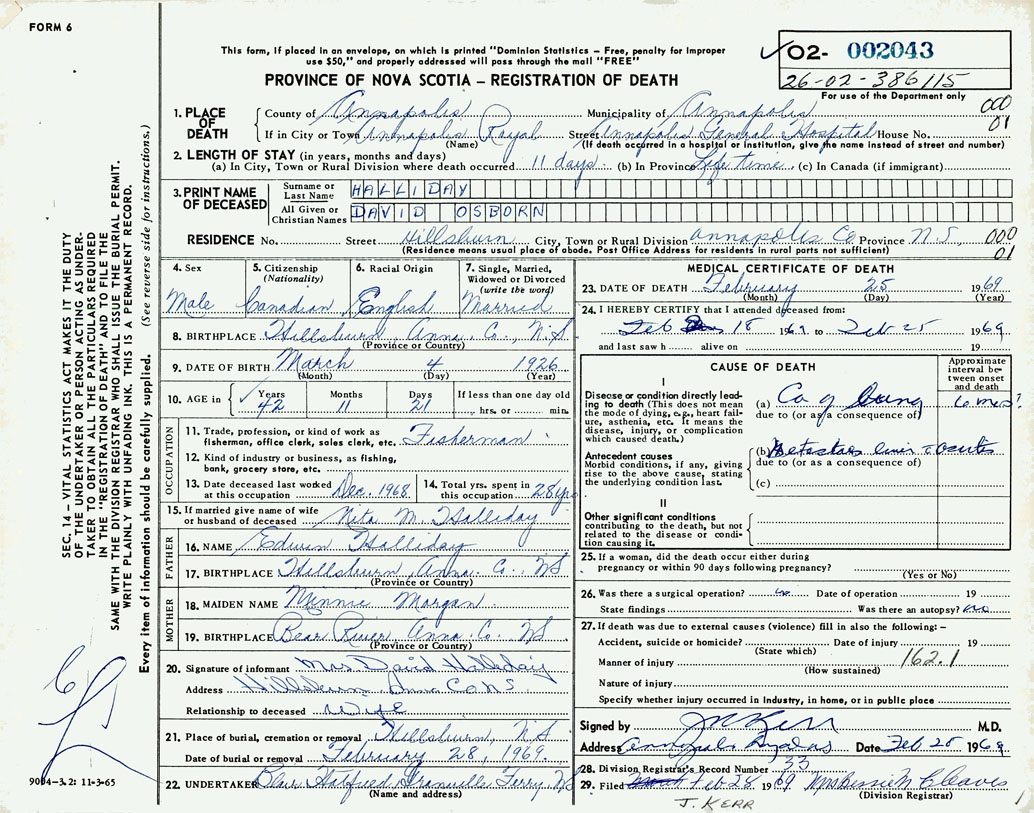 FORM 6
This form, if placed in an envelope, on which is printed "Dominion Statistics – Free, penalty for improper
use $50," and properly addressed will pass through the mail "FREE"
PROVINCE OF NOVA SCOTIA – REGISTRATION OF DEATH
✓02- 002043
26-02-386115
For use of the Department only
000
01
1. PLACE OF DEATH
County of Annapolis Municipality of Annapolis
If in City or Town Annapolis Royal Street Annapolis General Hospital House No.
(Name) (If death occurred in a hospital or institution, give the name instead of street and number)
2. LENGTH OF STAY (in years, months and days)
(a) In City, Town or Rural Division where death occurred 11 days (b) in Province Life time (c) In Canada (if immigrant)
3. PRINT NAME OF DECEASED
Surname or Last Name HALLIDAY
All Given or Christian Names DAVID OSBORN
RESIDENCE No. Street Hillsburn City, Town or Rural Division Annapolis Co Province N.S. 000
(Residence means usual place of abode. Post Office Address for residents in rural parts not sufficient) 01
4. Sex
Male
5. Citizenship
(Nationality)
Canadian
6. Racial Origin
English
7. Single, Married,
Widowed or Divorced
(write the word)
Married
8. BIRTHPLACE Hillsburn, Anna. Co., N.S
(Province or Country)
9. DATE OF BIRTH March 4 1926
(Month) (Day) (Year)
10. AGE in
✓ Years Months Days If less than one day old
42 11 21 hrs. or min.
OCCUPATION
11. Trade, profession, or kind of work as
fisherman, office clerk, sales clerk, etc. Fisherman
12. Kind of industry or business, as fishing,
bank, grocery store, etc.
13. Date deceased last worked
at this occupation Dec. 1968
14. Total yrs. spent in
this occupation 28 yrs
15. If married give name of wife
or husband of deceased Nita M. Halliday
FATHER
16. NAME Edwin Halliday
17. BIRTHPLACE Hillsburn, Anna. Co., NS
(Province or Country)
MOTHER
18. MAIDEN NAME Minnie Morgan
19. BIRTHPLACE Bear River, Anna Co. NS
(Province or Country)
20. Signature of informant Mrs David Halliday
Address Hillsburn Anna Co NS
Relationship to deceased Wife
21. Place of burial, cremation or removal Hillsburn, N.S
Date of burial or removal February 28, 1969.
22. UNDERTAKER Granville Ferry, NS
(Name and address)
MEDICAL CERTIFICATE OF DEATH
23. DATE OF DEATH February 25 1969
(Month) (Day) (Year)
24. I HEREBY CERTIFY that I attended deceased from:
Feb 18 1969 to Feb 25 1969
and last saw h alive on 19
CAUSE OF DEATH
Approximate
interval be-
tween onset
and death
I
Disease or condition directly lead-
ing to death (This does not mean
the mode of dying, e.g., heart fail-
ure, asthenia, etc. It means the
disease, injury, or complication
which caused death.)
(a) Ca of lung 6 mos?
due to (or as a consequence of)
Antecedent causes
Morbid conditions, if any, giving
rise to the above cause, stating
the underlying condition last.
(b) Metastases liver
due to (or as a consequence of)
(c)
II
Other significant conditions
contributing to the death, but not
related to the disease or condi-
tion causing it.
25. If a woman, did the death occur either during
pregnancy or within 90 days following pregnancy?
(Yes or No)
26. Was there a surgical operation? no Date of operation 19
State findings Was there an autopsy? no
27. If death was due to external causes (violence) fill in also the following: –
Accident, suicide or homicide? Date of injury 19
(State which)
Manner of injury 162.1
(How sustained)
Nature of injury
Specify whether injury occurred in industry, in home, or in public place
Signed by J Kerr M.D.
Address Annapolis Royal NS Date Feb 28 1969
28. Division Registrar's Record Number 33
29. Filed Feb 28 1969 Mrs Bessie M Cleaves
(Division Registrar)
J. KERR
SEC. 14 – VITAL STATISTICS ACT MAKES IT THE DUTY
OF THE UNDERTAKER OR PERSON ACTING AS UNDER-
TAKER TO OBTAIN ALL THE PARTICULARS REQUIRED
IN THE "REGISTRATION OF DEATH" AND TO FILE THE
SAME WITH THE DIVISION REGISTRAR WHO SHALL ISSUE THE BURIAL PERMIT.
WRITE PLAINLY WITH UNFADING INK. THIS IS A PERMANENT RECORD.
Every item of information should be carefully supplied. (See reverse side for instructions.)
9004-3.2: 11-3-65